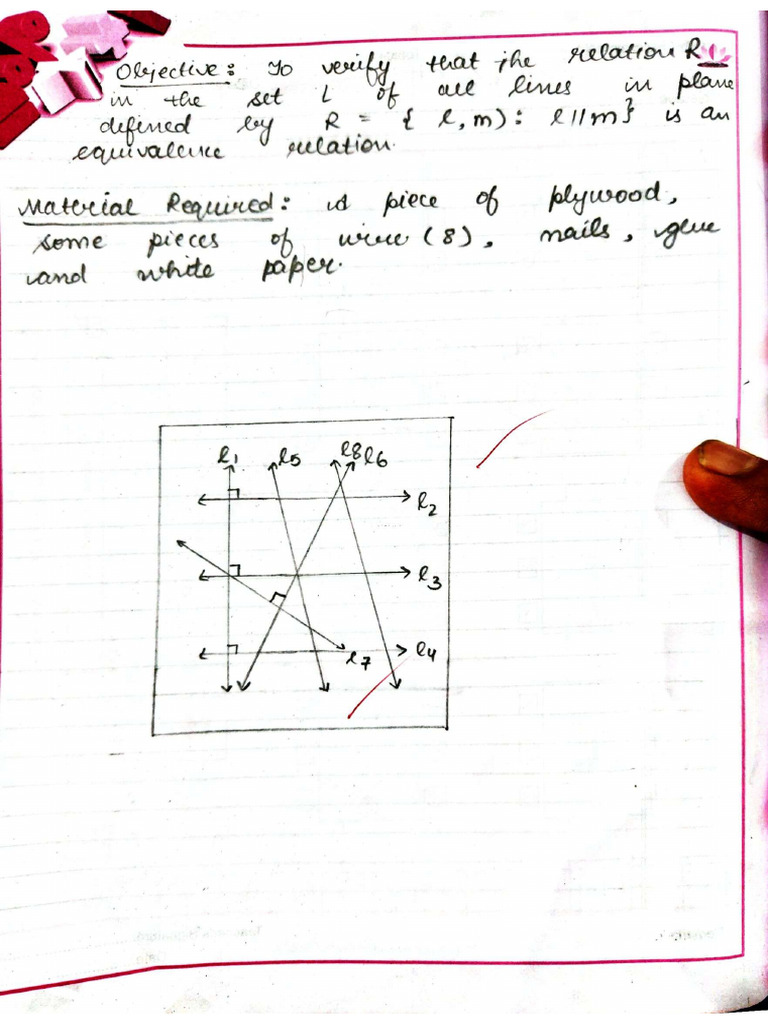 Objective: To verify that the relation R
in the set L of all lines in plane
defined by R = { l, m) : l || m } is an
equivalence relation.
Material Required: A piece of plywood,
some pieces of wire (8), nails, glue
and white paper.
l1 l5 l8 l6
l2
l3
l4
l7